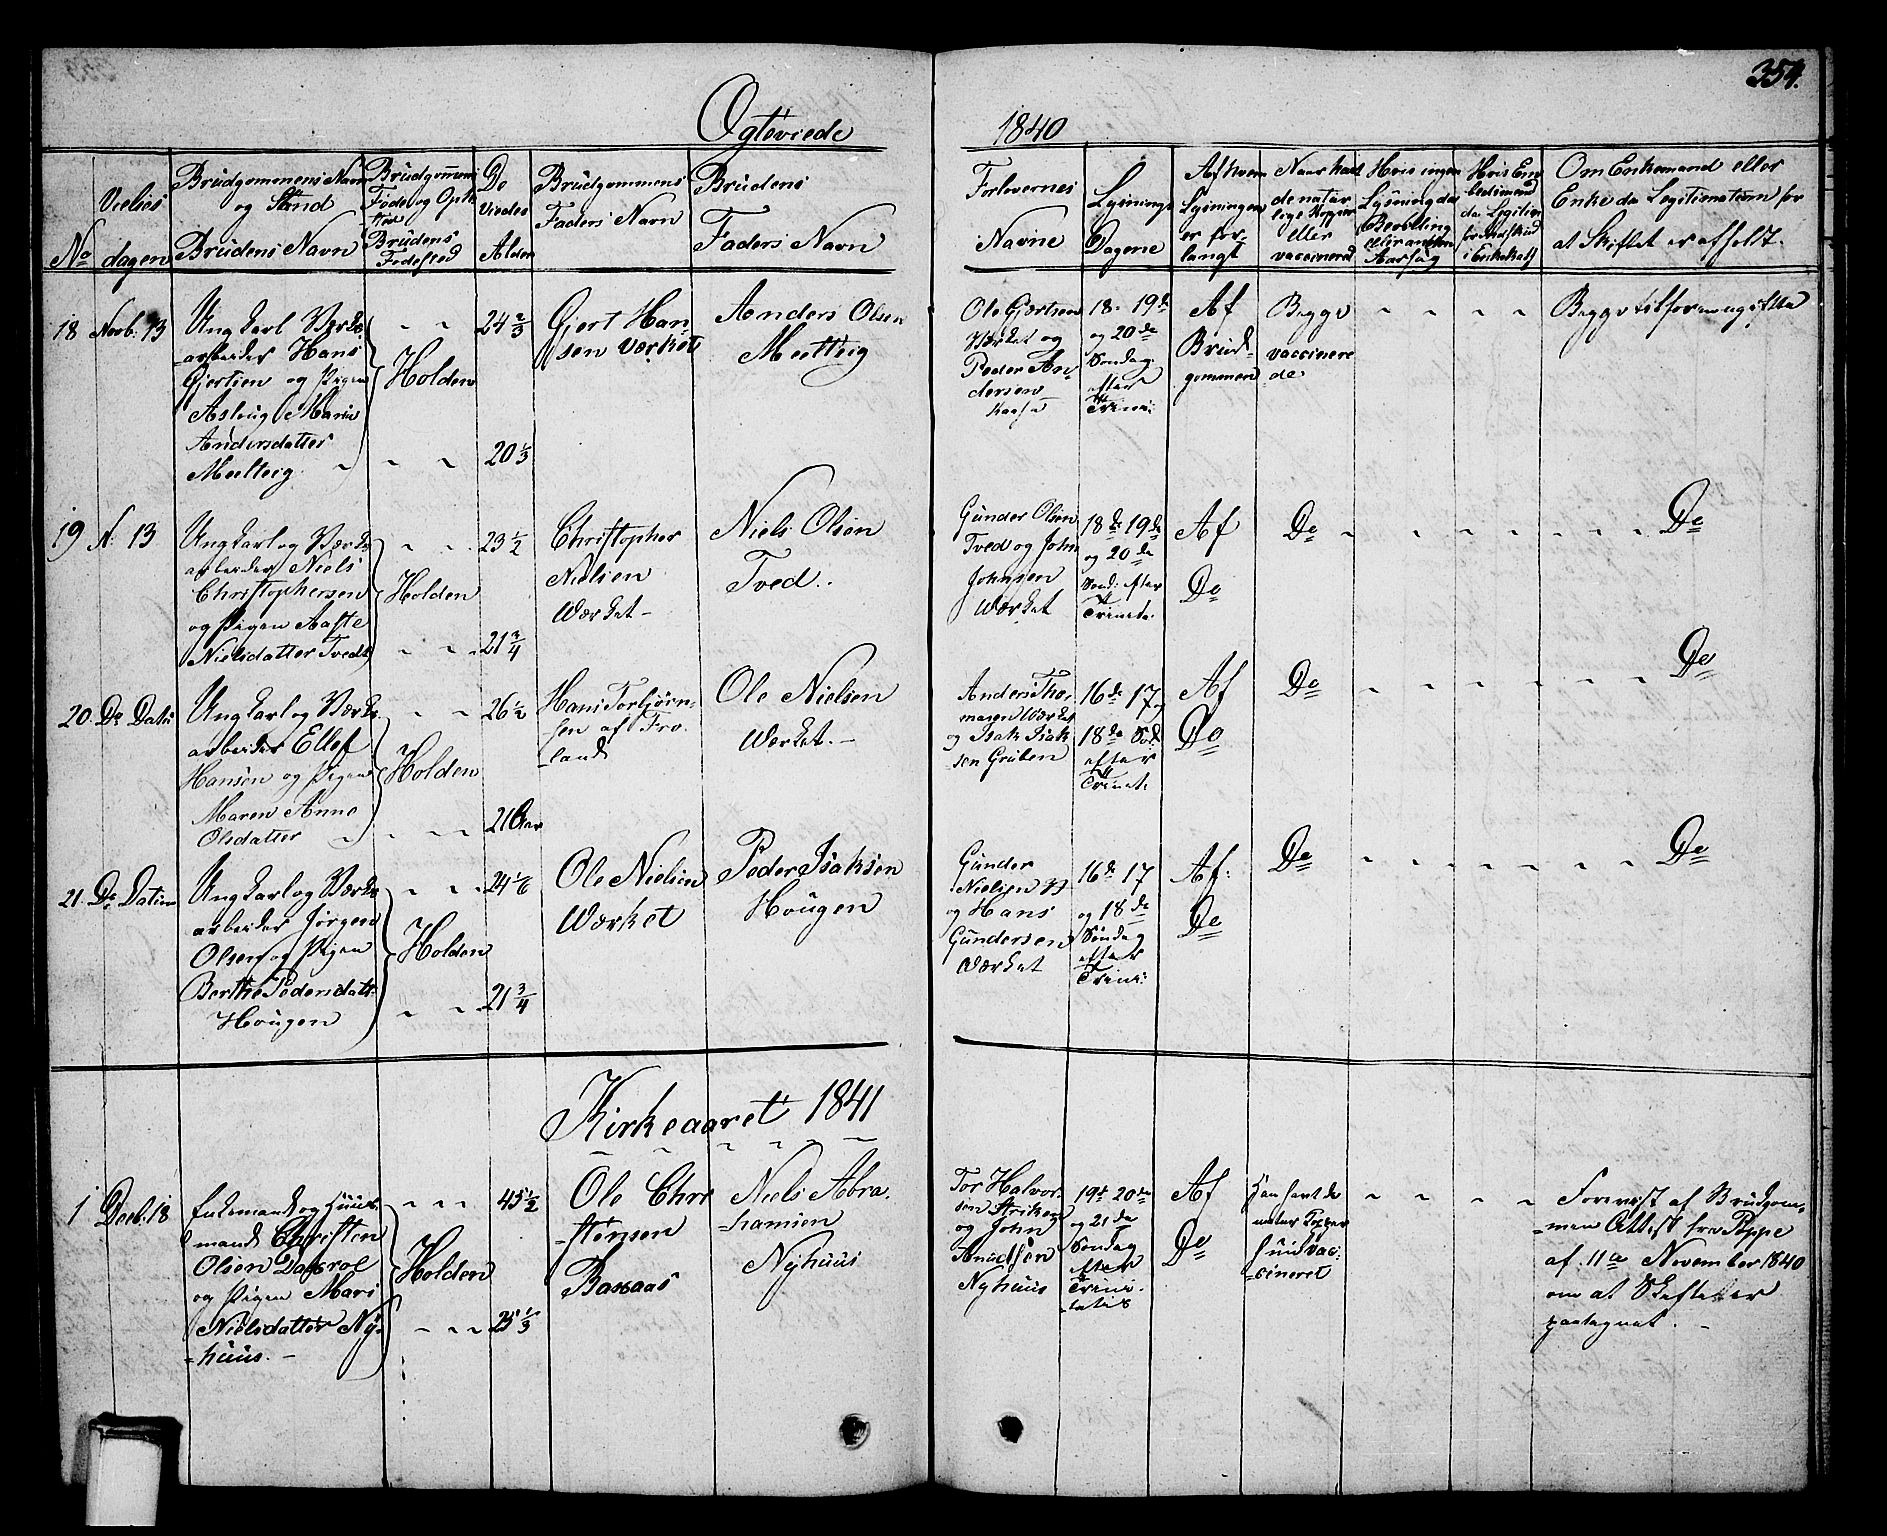 354.
Ogteviede 1840
No
Vielses
dagen
Brudgommens Navn
og Stand
Brudens Navn
Brudgommens
Føde og Opholds
sted
Brudens
Fødested
De
Viedes
Alder
Brudgommens
Faders Navn
Brudens
Faders Navn
Forlovernes
Navne
Lysnings
Dagene
Af hvem
Lysningen
er for-
langt
Naar havt
de natur
lige Kopper
eller
vaccinered
Hvis ingen
Lysning da
Bevilling
eller anden
Aarsag
Om Enkemand eller
Enke da Legitimation for
at Skiftet er afholt.
18 Novb. 13
Ungkarl Værks
arbeider Hans
Gjertsen og Pigen
Aslaug Marie
Andersdatter
Meelteig
" "
Holden
" "
24 2/3
20 1/3
Gjert Han
sen Værket
Anders Olsen
Meelteig
Ole Gjertsen
Værket og
Peder An
dersen
Kaasa
18. 19de
og 20de
Søndag
efter
Trini:
Af
Brud-
gommen
Begge
vaccinere
de:
" " " "
19 N: 13
Ungkarl og Værks
arbeider Niels
Christophersen
og Pigen Aaste
Nielsdatter Tvedt
" "
Holden
" "
23 1/2
21 3/4
Christopher
Nielsen
Værket
Niels Olsen
Tved.
Gunder Olsen
Tved og John
Johnsen
Værket
18de 19de
og 20de
Sønd: efter
Trinit.
Af
Do
Do " " " " " " Do
20. Do Dato
Ungkarl og Værks
arbeider Ellef
Hansen og Pigen
Maren Anne
Olsdatter
" "
Holden
" "
26 1/2
21 Aar
Hans Torbjørn-
sen af Fro
land
Ole Nielsen
Værket.
Anders Tho-
masen Værket
og Isak Isak
sen Gruben
16de 17
og
18de Søn:
efter
Trinit:
Af
Do
Do " " " " " " Do
21. Do Datum
Ungkarl og Værks
arbeider Jørgen
Olsen og Pigen
Berthe Pedersdatt:
Hougen
" "
Holden
" "
24 1/6
21 3/4
Ole Nielsen
Værket
Peder Isaksen
Hougen
Gunder
Nielsen
og Hans
Gundersen
Værket
16de 17
og 18de
Søndag
efter
Trini:
Af:
Do
Do " " " " " " Do
Kirkeaaret 1841
1 Decb. 18
Enkemand og Huus
mand Christen
Olsen
og Pigen Mari
Nielsdatter Ny-
huus.
" "
Holden
" "
45 1/2
25 1/3
Ole Chri
stensen
Baxaas
Niels Abra
hamsen
Nyhuus
Tor Halvor
sen
og John
Knudsen
Nyhuus
19de 20de
og 21de
Søndag
efter
Trini
tatis
Af
Do
Han havt de
natur Kopper
hun vac
cineret
" " " "
Foreviist af Brudgom-
men Attest fra Poppe
af 11te November 1840
om at Skiftet er
paategnet.